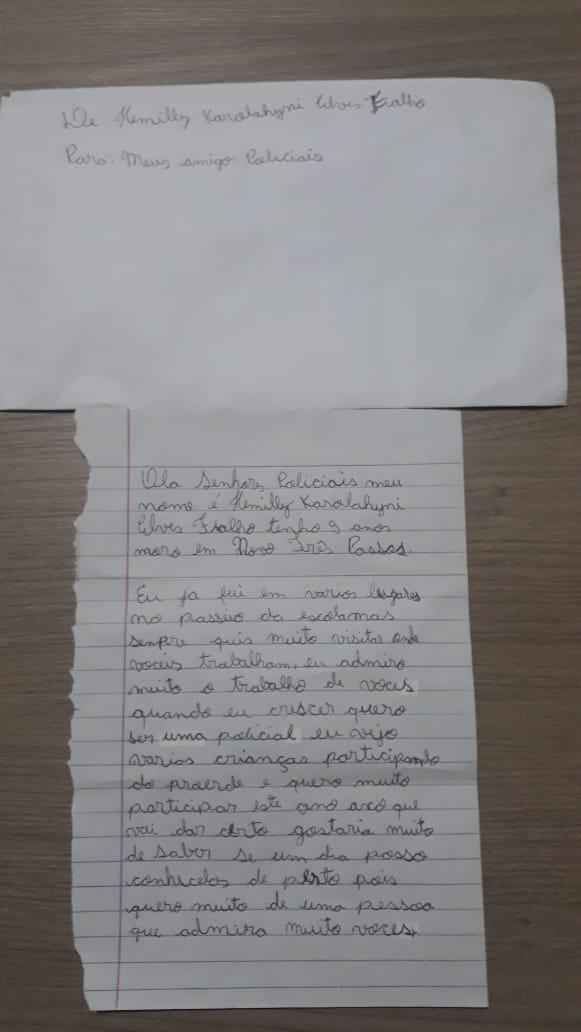 De: Hemilly Karolahyni Elves Fialho.
Para: Meus amigo Policiais
Ola Senhores Policiais meu
nome é Hemilly Karolahyni
Elves Fialho tenho 9 anos
moro em Novo Três Passos.
Eu ja fui em varios lugares
no passeio da escola mas
senpre quis muito visitar onde
voceis trabalham, eu admiro
muito o trabalho de voces
quando eu cruscer quero
ser uma policial eu vijo
varias crianças participando
do proerde e quero muito
participar este ano axo que
vai dar certo gostaria muito
de saber se um dia posso
conhecelos de perto pois
quero muito de uma pessoa
que admira muito voces